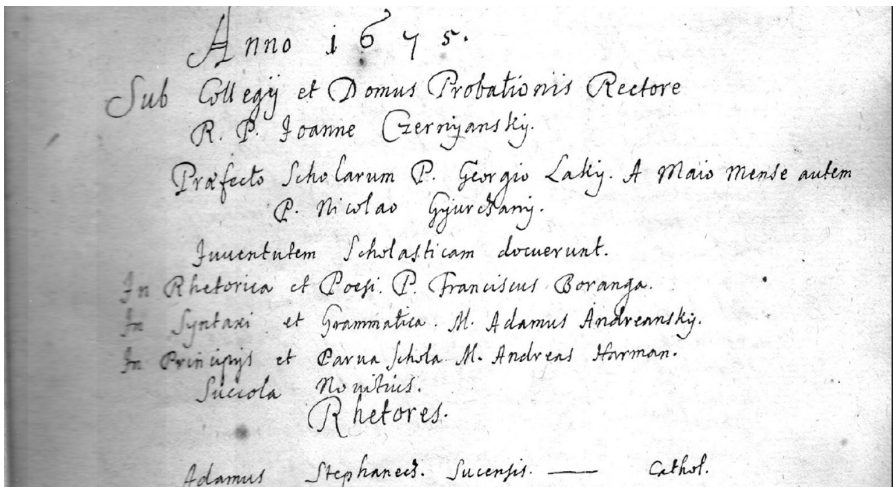 Anno 1675.
Sub Collegij et Domus Probationis Rectore
R. P. Joanne Czernyansky.
Præfecto Scholarum P. Georgio Laky. A Maio mense autem
P. Nicolao Gyurchany.
Juuentutem Scholasticam docuerunt.
In Rhetorica et Poesi. P. Franciscus Boranga.
In Syntaxi et Grammatica. M. Adamus Andreansky.
In Principijs et Parua Schola M. Andreas Harman.
Novitius.
Rhetores.
Adamus Sucensis. — Cathol.